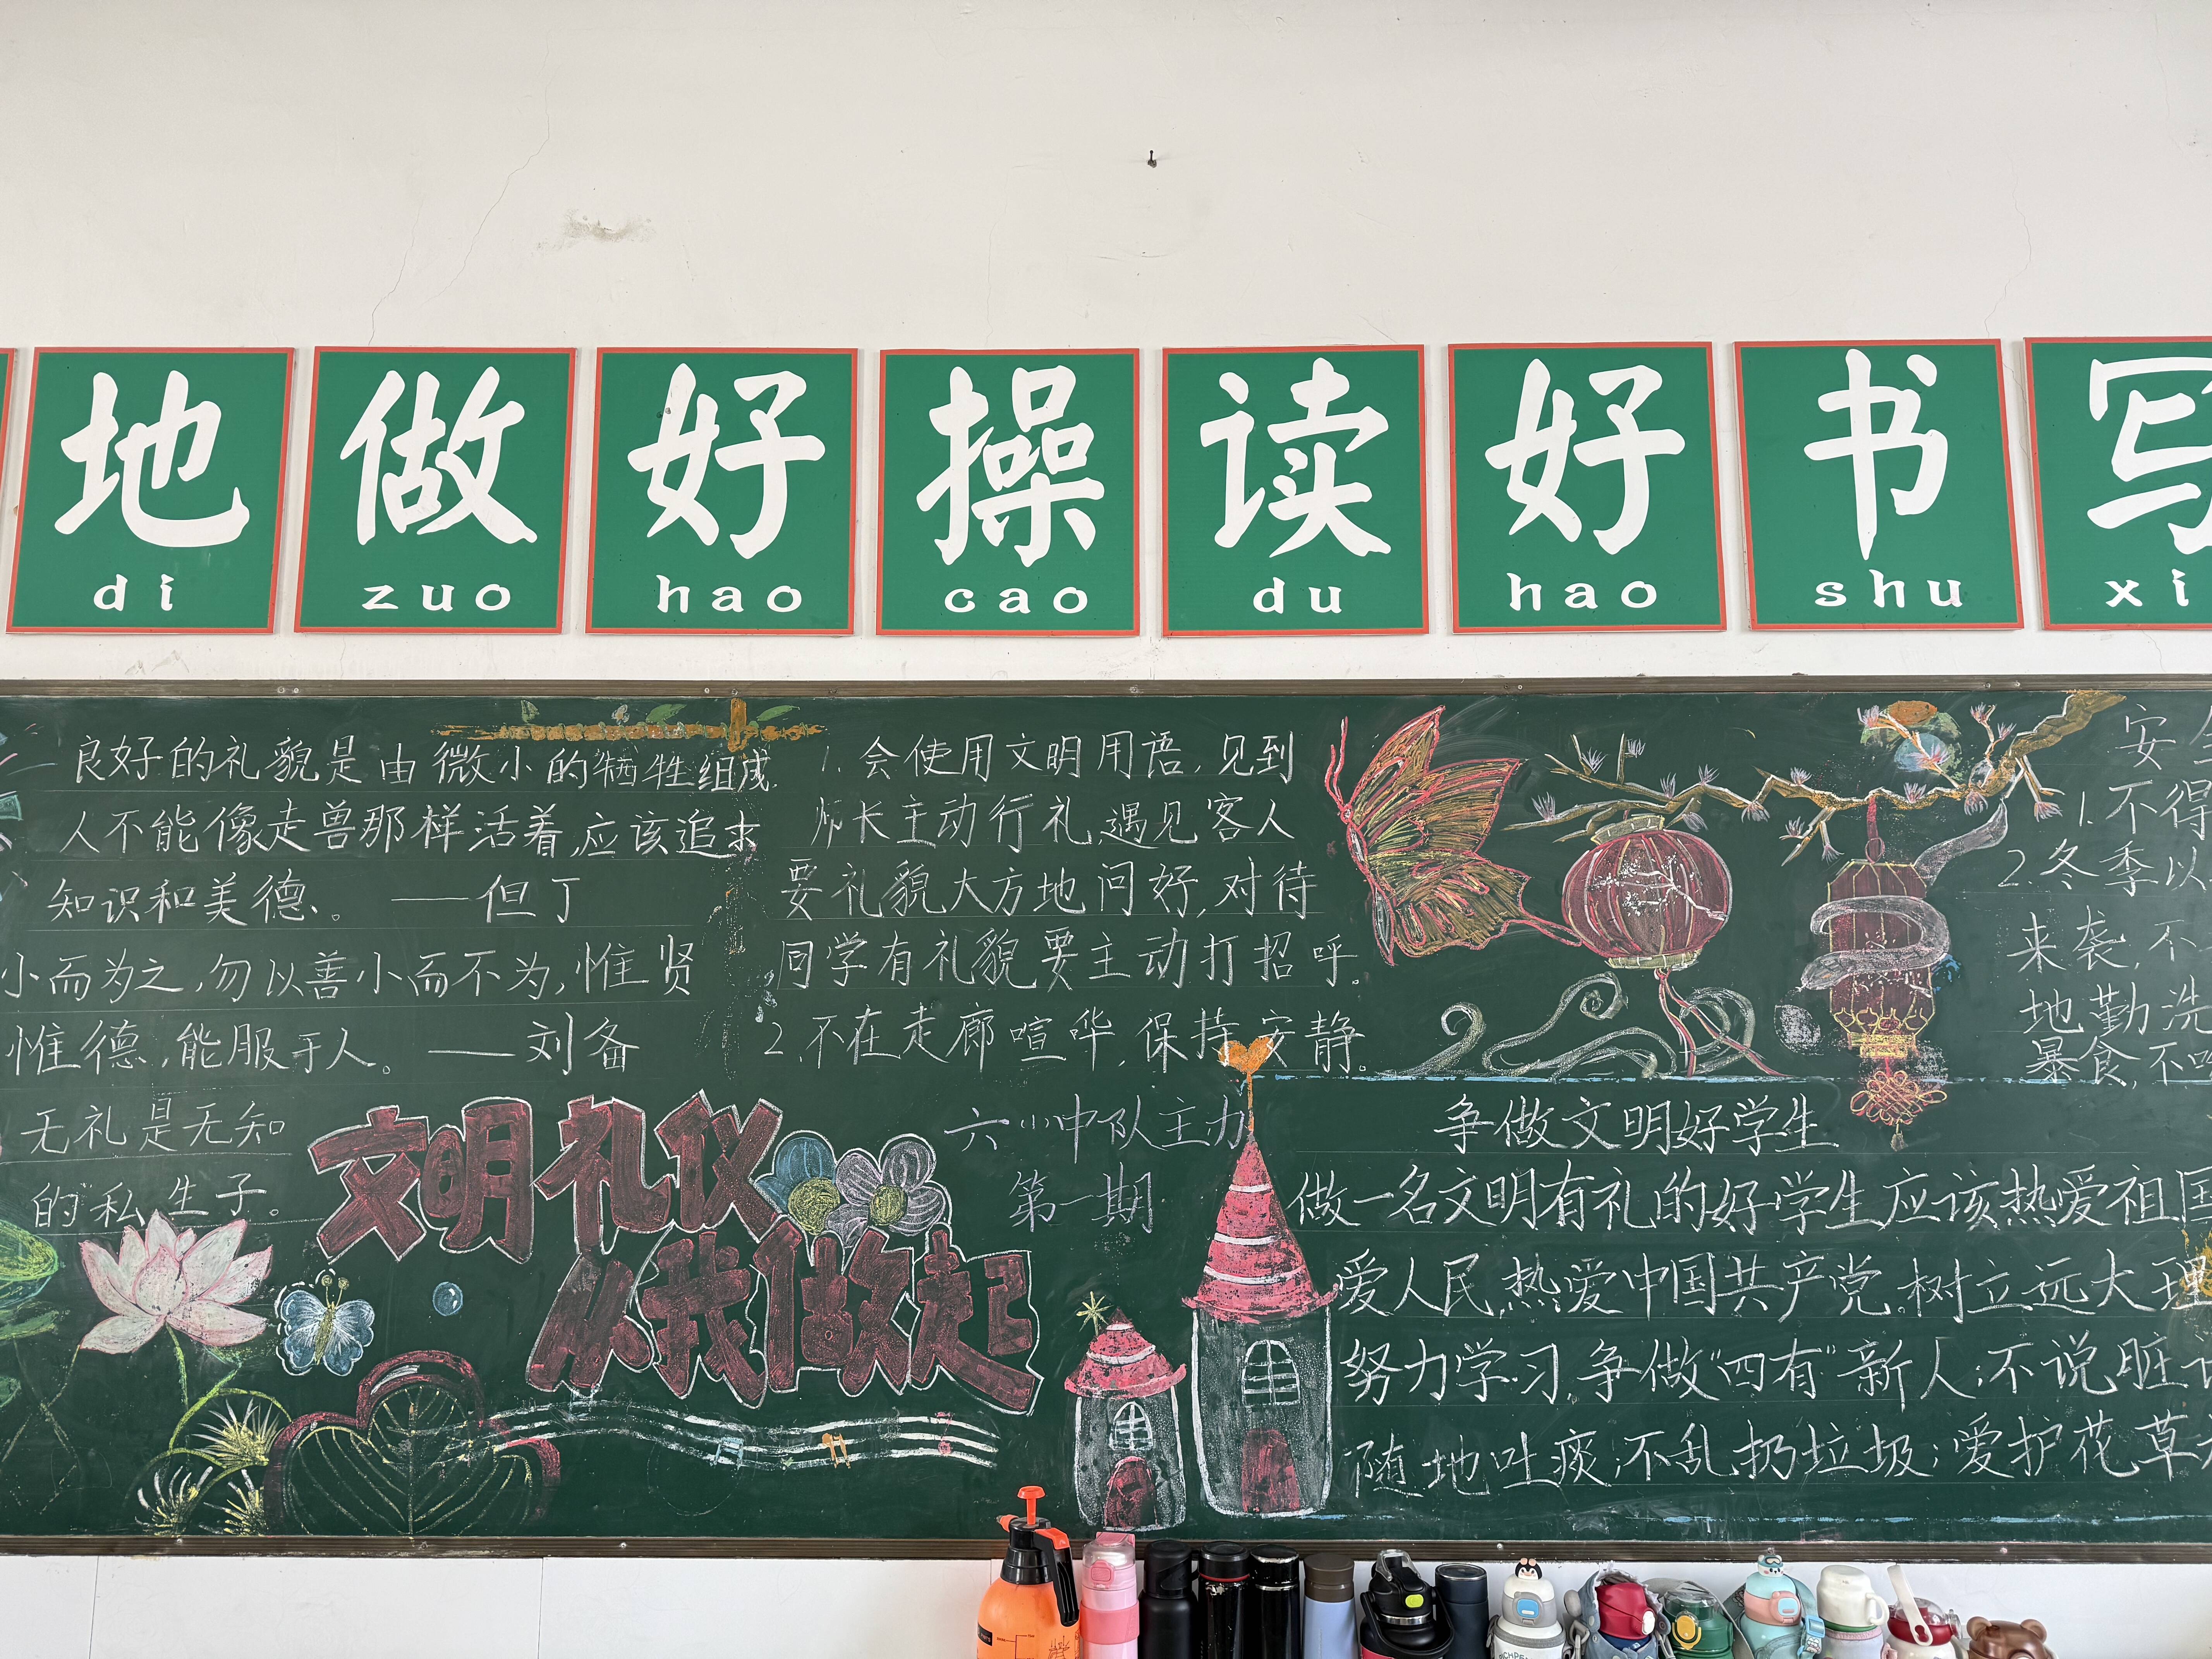 地 做 好 操 读 好 书 写
di zuo hao cao du hao shu xi
良好的礼貌是由微小的牺牲组成.
人不能像走兽那样活着,应该追求
知识和美德。——但丁
小而为之,勿以善小而不为,惟贤
惟德,能服于人。——刘备
无礼是无知
的"私生子。
文明礼仪
从我做起
1.会使用文明用语,见到
师长主动行礼,遇见客人
要礼貌大方地问好,对待
同学有礼貌要主动打招呼。
2.不在走廊喧哗,保持安静。
中队主力
第一期
争做文明好学生
做一名文明有礼的好学生应该热爱祖国
爱人民,热爱中国共产党。树立远大理
努力学习,争做"四有"新人;不说脏
随地吐痰;不乱扔垃圾;爱护花草
安
1.不得
2.冬季以
来袭,不
地勤洗
暴食,不